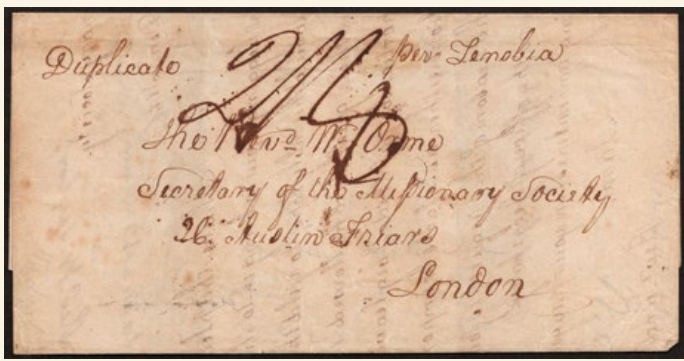 Duplicate per Zenobia
The Revd Mr Orme
Secretary of the Missionary Society
26 Austin Friars
London